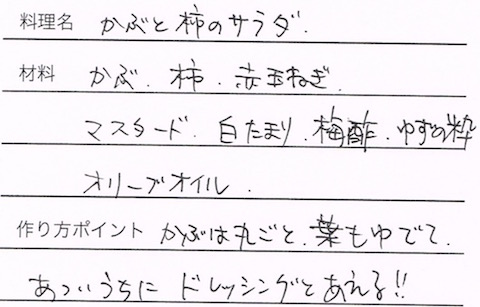 料理名 かぶと柿のサラダ.
材料 かぶ. 柿. 赤玉ねぎ.
マスタード. 白たまり. 梅酢. ゆずの粋
オリーブオイル.
作り方ポイント かぶは丸ごと. 葉もゆでて.
あついうちに ドレッシングとあえる!!